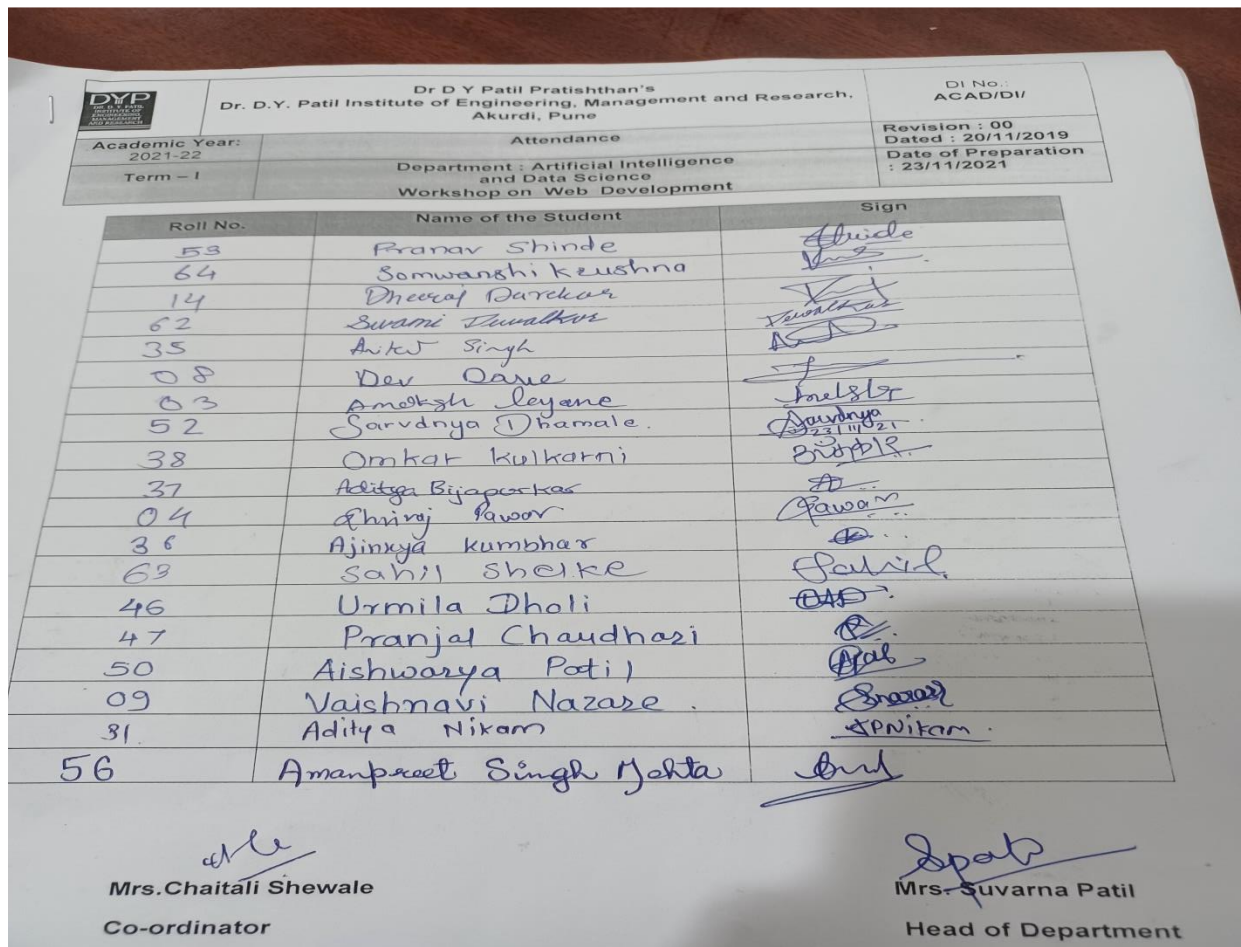 DYP
DR. D. Y. PATIL
INSTITUTE OF
ENGINEERING,
MANAGEMENT
AND RESEARCH
Dr D Y Patil Pratishthan's
Dr. D.Y. Patil Institute of Engineering, Management and Research,
Akurdi, Pune
DI No.:
ACAD/DI/
Academic Year:
2021-22
Attendance
Revision : 00
Dated : 20/11/2019
Term – I
Department : Artificial Intelligence
and Data Science
Workshop on Web Development
Date of Preparation
: 23/11/2021
Roll No. Name of the Student Sign
59 Pranav Shinde
64 Somwanshi Krushna
14 Dheeraj Darekar
62 Swami Duwalkar
35 Aniket Singh
08 Dev Dave
03 leyane
52 Sarvdnya Dhamale. Sarvdnya
23/11/21
38 Omkar Kulkarni
37 Aditya Bijapurkar
04 Pawar Pawar
36 Ajinkya Kumbhar
63 Sahil Shelke Sahil
46 Urmila Dholi
47 Pranjal Chaudhari
50 Aishwarya Patil
09 Vaishnavi Nazare.
31. Aditya Nikam APNikam.
56 Amanpreet Singh Mehta
Mrs.Chaitali Shewale
Co-ordinator
Mrs. Suvarna Patil
Head of Department